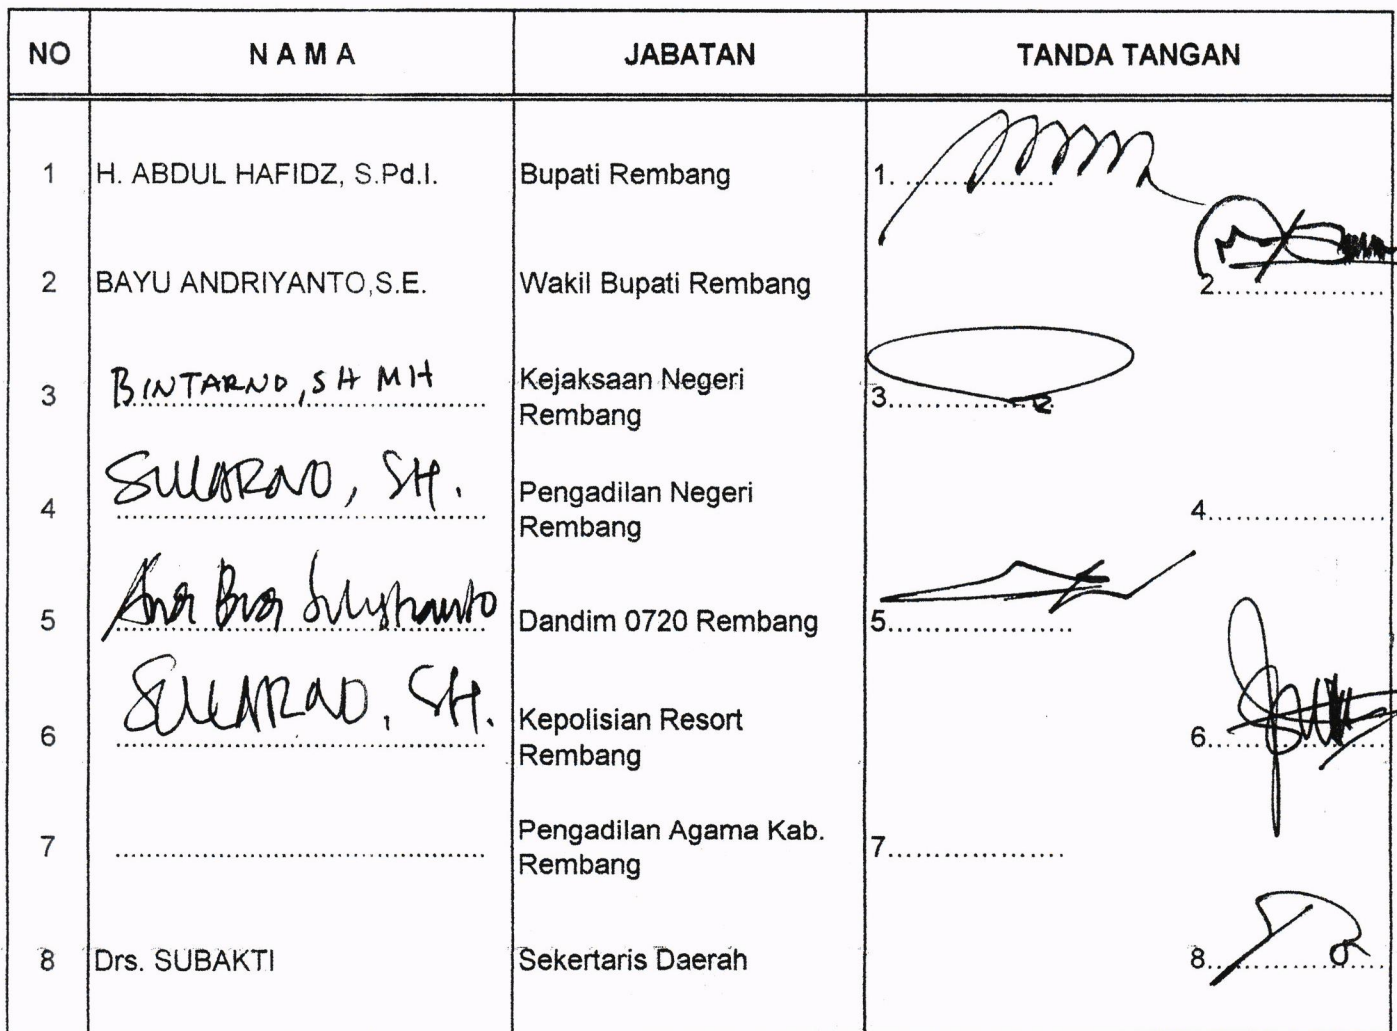 NO N A M A JABATAN TANDA TANGAN
1 H. ABDUL HAFIDZ, S.Pd.I. Bupati Rembang 1. ................
2 BAYU ANDRIYANTO,S.E. Wakil Bupati Rembang 2..................
3 BINTARNO, SH MH Kejaksaan Negeri 3..................
Rembang
4 SUKARNO, SH. Pengadilan Negeri 4..................
Rembang
5 Dandim 0720 Rembang 5..................
6 SUKARNO, SH. Kepolisian Resort 6..................
Rembang
7 ...................................... Pengadilan Agama Kab. 7..................
Rembang
8 Drs. SUBAKTI Sekertaris Daerah 8..................